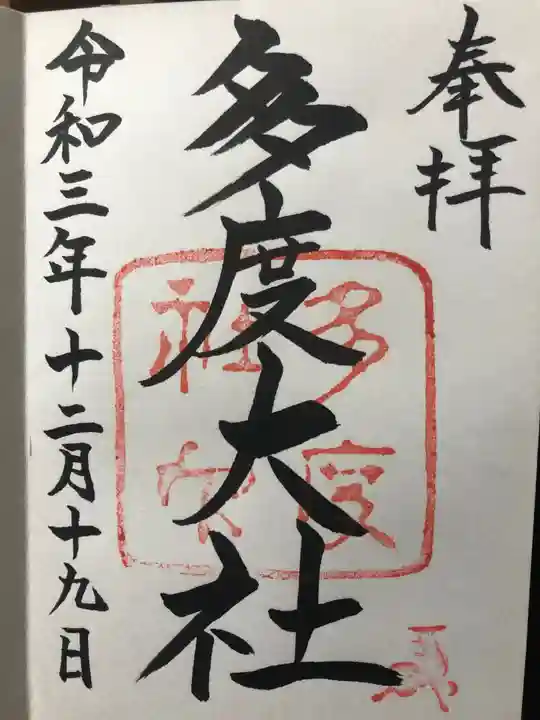 奉拝
多度大社
多度
社印
令和三年十二月十九日